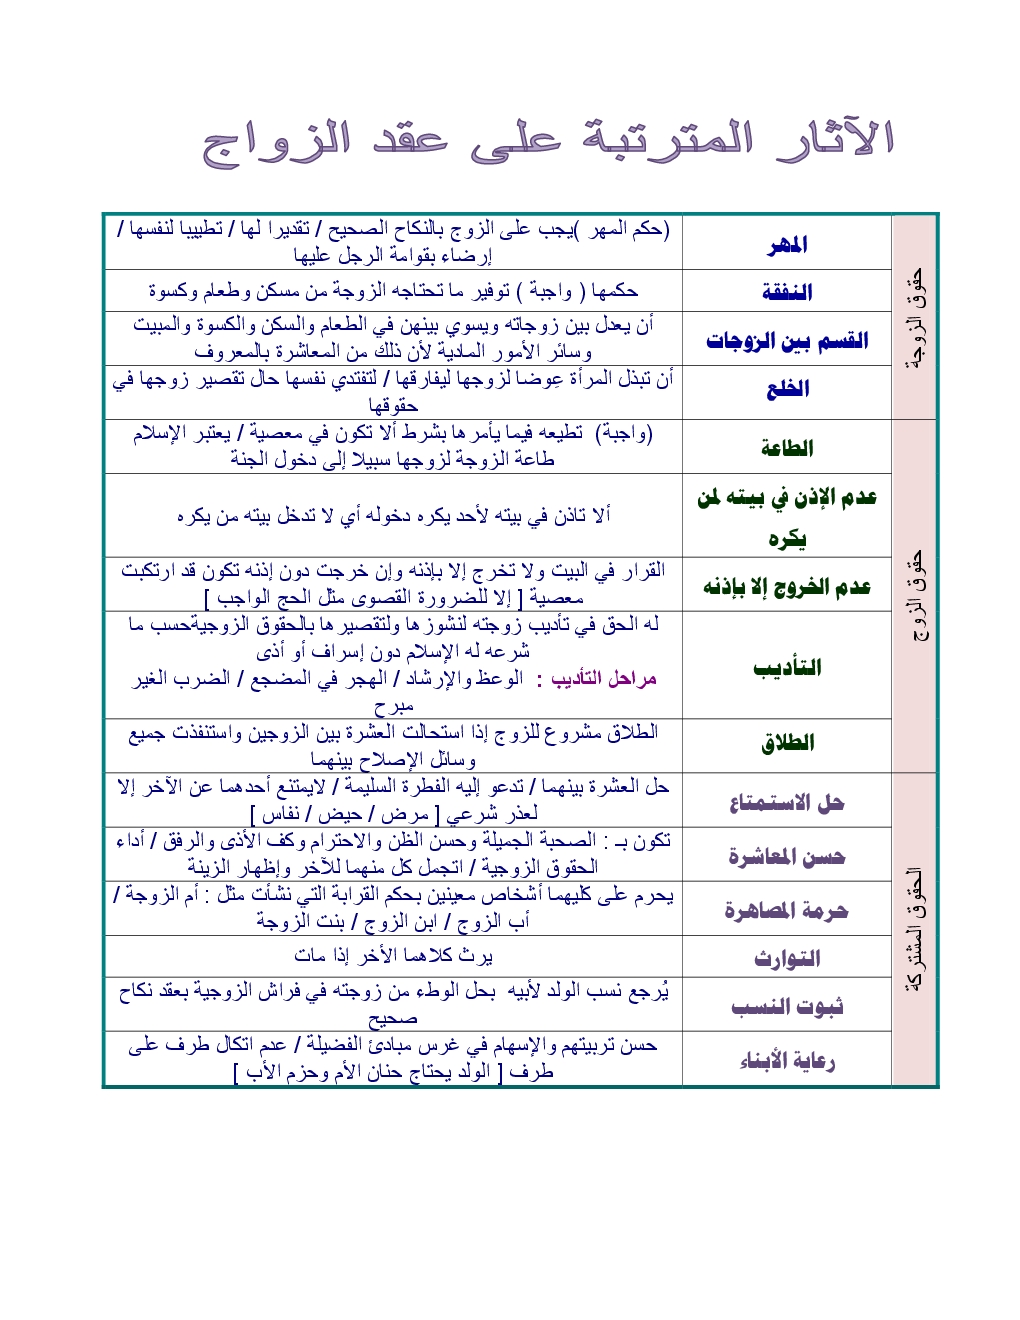 الآثار المترتبة على عقد الزواج
حقوق الزوجة
المهر
(حكم المهر )يجب على الزوج بالنكاح الصحيح / تقديرا لها / تطييبا لنفسها /
إرضاء بقوامة الرجل عليها
النفقة
حكمها ( واجبة ) توفير ما تحتاجه الزوجة من مسكن وطعام وكسوة
القسم بين الزوجات
أن يعدل بين زوجاته ويسوي بينهن في الطعام والسكن والكسوة والمبيت
وسائر الأمور المادية لأن ذلك من المعاشرة بالمعروف
الخلع
أن تبذل المرأة عِوضا لزوجها ليفارقها / لتفتدي نفسها حال تقصير زوجها في
حقوقها
حقوق الزوج
الطاعة
(واجبة) تطيعه فيما يأمرها بشرط ألا تكون في معصية / يعتبر الإسلام
طاعة الزوجة لزوجها سبيلا إلى دخول الجنة
عدم الإذن في بيته لمن
يكره
ألا تاذن في بيته لأحد يكره دخوله أي لا تدخل بيته من يكره
عدم الخروج إلا بإذنه
القرار في البيت ولا تخرج إلا بإذنه وإن خرجت دون إذنه تكون قد ارتكبت
معصية [ إلا للضرورة القصوى مثل الحج الواجب ]
التأديب
له الحق في تأديب زوجته لنشوزها ولتقصيرها بالحقوق الزوجيةحسب ما
شرعه له الإسلام دون إسراف أو أذى
مراحل التأديب : الوعظ والإرشاد / الهجر في المضجع / الضرب الغير
مبرح
الطلاق
الطلاق مشروع للزوج إذا استحالت العشرة بين الزوجين واستنفذت جميع
وسائل الإصلاح بينهما
الحقوق المشتركة
حل الاستمتاع
حل العشرة بينهما / تدعو إليه الفطرة السليمة / لايمتنع أحدهما عن الآخر إلا
لعذر شرعي [ مرض / حيض / نفاس ]
حسن المعاشرة
تكون بـ : الصحبة الجميلة وحسن الظن والاحترام وكف الأذى والرفق / أداء
الحقوق الزوجية / اتجمل كل منهما للآخر وإظهار الزينة
حرمة المصاهرة
يحرم على كليهما أشخاص معينين بحكم القرابة التي نشأت مثل : أم الزوجة /
أب الزوج / ابن الزوج / بنت الزوجة
التوارث
يرث كلاهما الأخر إذا مات
ثبوت النسب
يُرجع نسب الولد لأبيه بحل الوطء من زوجته في فراش الزوجية بعقد نكاح
صحيح
رعاية الأبناء
حسن تربيتهم والإسهام في غرس مبادئ الفضيلة / عدم اتكال طرف على
طرف [ الولد يحتاج حنان الأم وحزم الأب ]